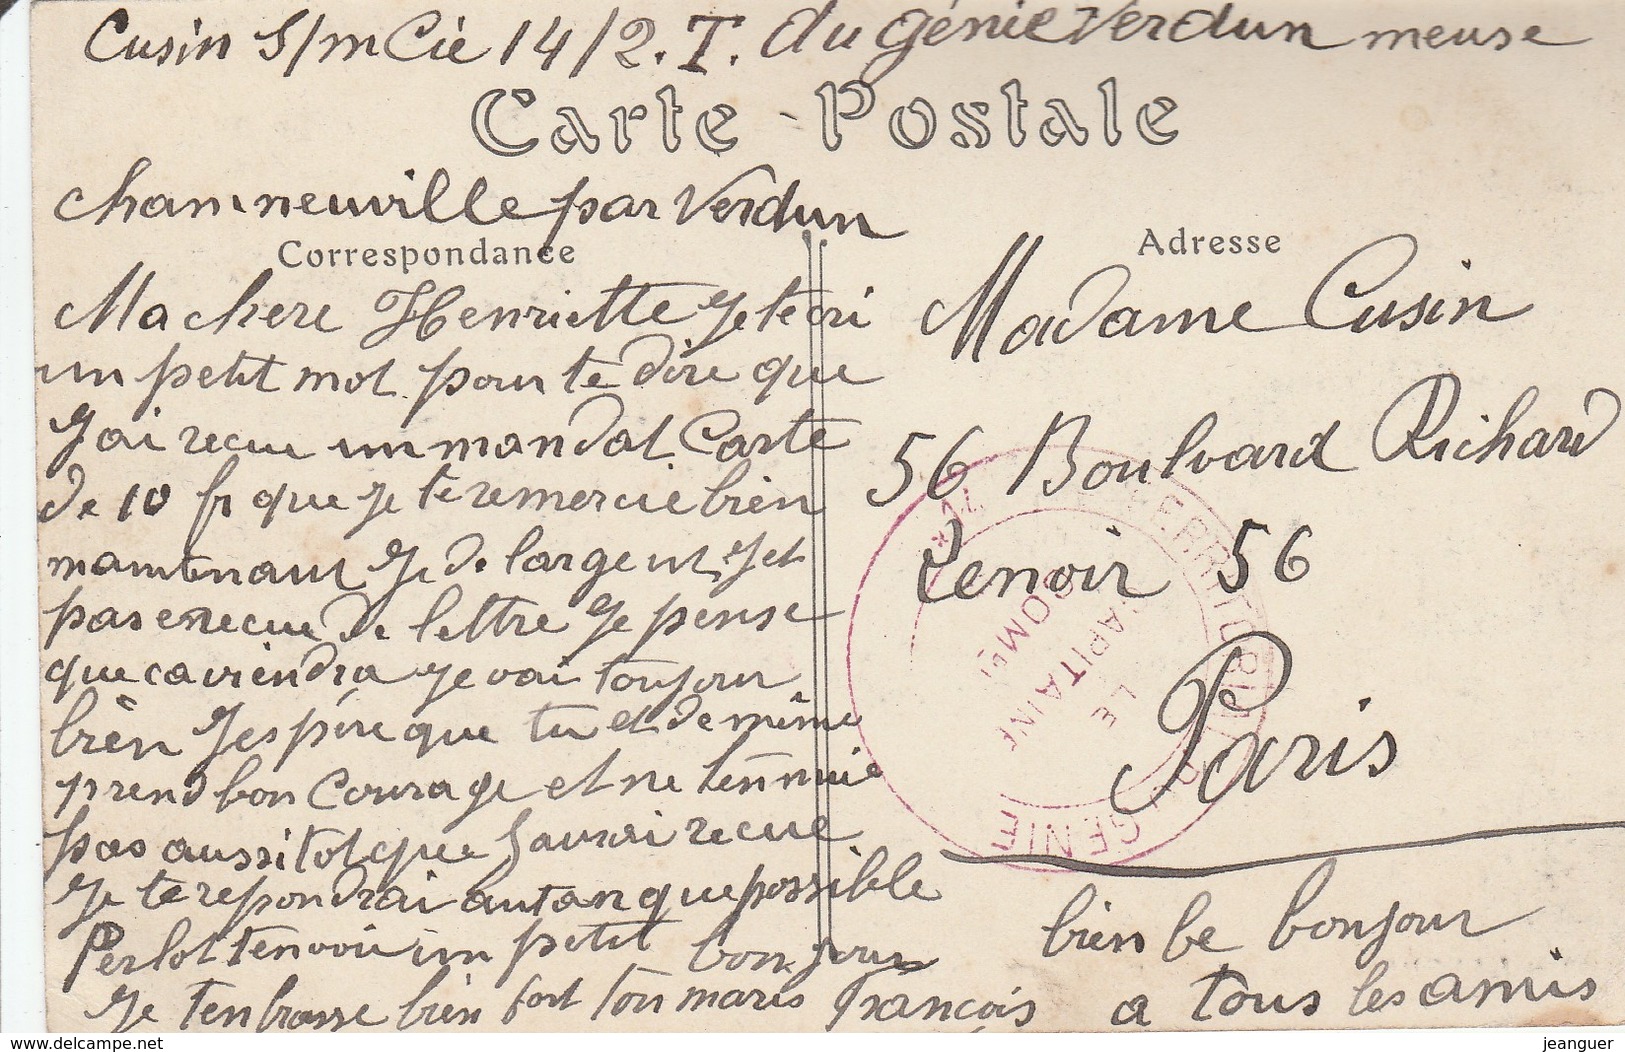 Cusin S/m Cie 14/2. T. du génie Verdun meuse
Carte Postale
chamneuville par Verdun
Correspondance
Ma chere Henriette je técri
un petit mot pour te dire que
J ai recue un mandat Carte
de 10 fr que je te remercie bien
maintenant je de largent jet
pas en recue de lettre je pense
que ca viendra je vai toujour
bien Jespère que tu et de même
prend bon Courage et ne tennuie
pas aussitot que Jaurai recue
Je te repondrai autan que possible
Perlot tenvoie un petit bonjour
Je tenbrasse bien fort ton maris François
Adresse
Madame Cusin
56 Boulvard Richard
Lenoir 56
Paris
bien be bonjour
a tous les amis
LE
CAPITAINE
COMDT
GENIE
TERRITORIAL
delcampe.net
jeanguer